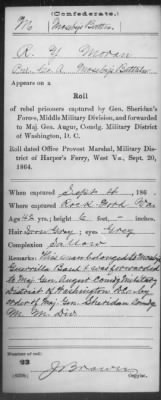 (Confederate.)
M Mosby's Battn.
R. Y. Moran
Pvt. Co. A. Mosby's Battalion
Appears on a
Roll
of rebel prisoners captured by Gen. Sheridan's
Forces, Middle Military Division, and forwarded
to Maj. Gen. Augur, Comdg. Military District
of Washington, D. C.
Roll dated Office Provost Marshal, Military Dis-
trict of Harper's Ferry, West Va., Sept. 20,
1864.
When captured Sept 4, 186
Where captured Rock Ford Va
Age 42 yrs.; height 6 ft. - inches.
Hair Iron Gray; eyes Grey
Complexion Sallow
Remarks: This man belongs to Mosby's
Guerrilla Band & was forwarded
to Maj. Gen. August Comdg Military
District of Washington D.C. by
order of Maj. Gen. Sheridan Comdg
M. M. Div.
Number of roll:
22
J. Brown
Copyist.